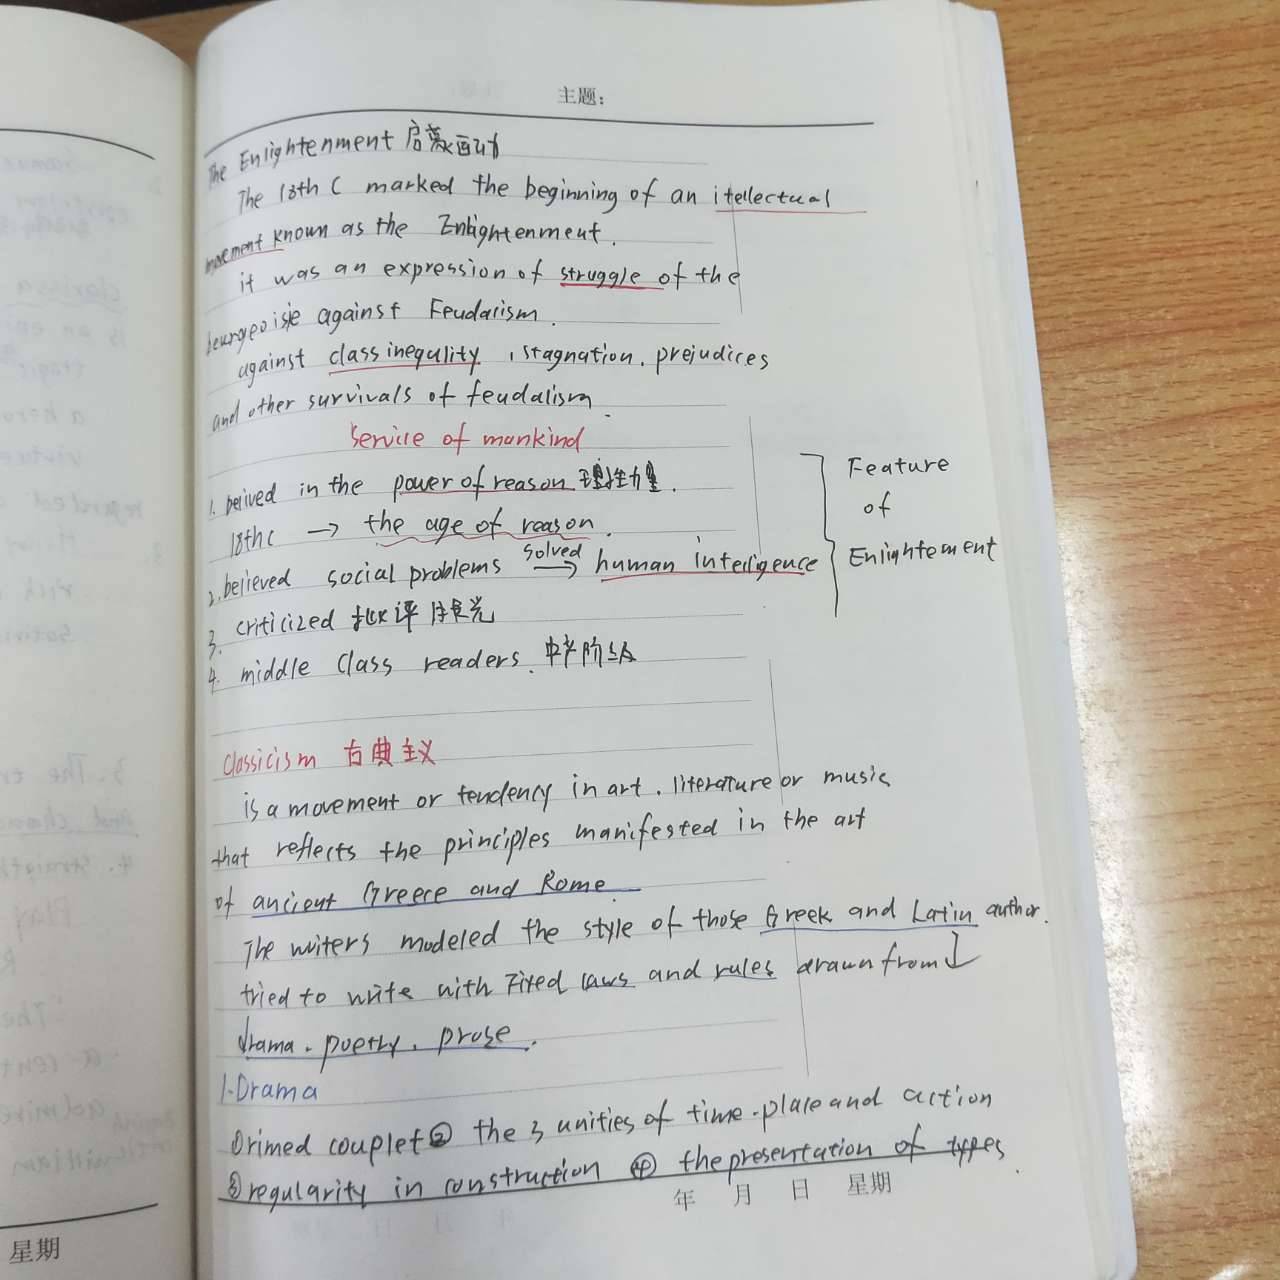 主题:
The Enlightenment 启蒙
The 18th C marked the beginning of an itellectual
movement known as the Enlightenment.
it was an expression of struggle of the
beurgeoisie against Feudalism.
against class inequlity , stagnation. prejudices
and other survivals of feudalism.
Service of mankind
1. belived in the power of reason 理性力量.
18th c → the age of reason.
2. believed social problems solved → human intelligence
3. criticized 批评
4. middle Class readers. 中产阶级
Feature
of
Enlightement
Classicism 古典主义
is a movement or tendency in art . literature or music
that reflects the principles manifested in the art
of ancient Greece and Rome.
The writers modeled the style of those Greek and Latin author.
tried to write with Fixed laws and rules drawn from ↓
drama. poetry. prose.
1.Drama
①rimed couplet② the 3 unities of time.place and action
③regularity in construction ④ the presentation of types.
年 月 日 星期
星期